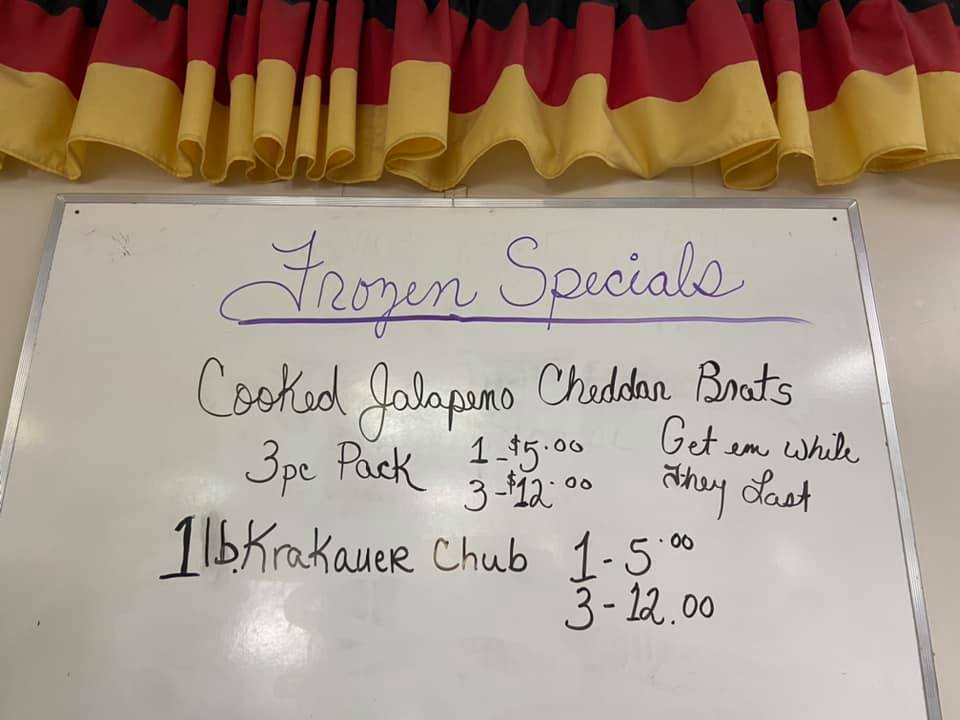 Frozen Specials
Cooked Jalapeno Cheddar Brats
3pc Pack 1-$5.00 Get em while
3-$12.00 They Last
1 lb. Krakauer Chub 1-5.00
3-12.00